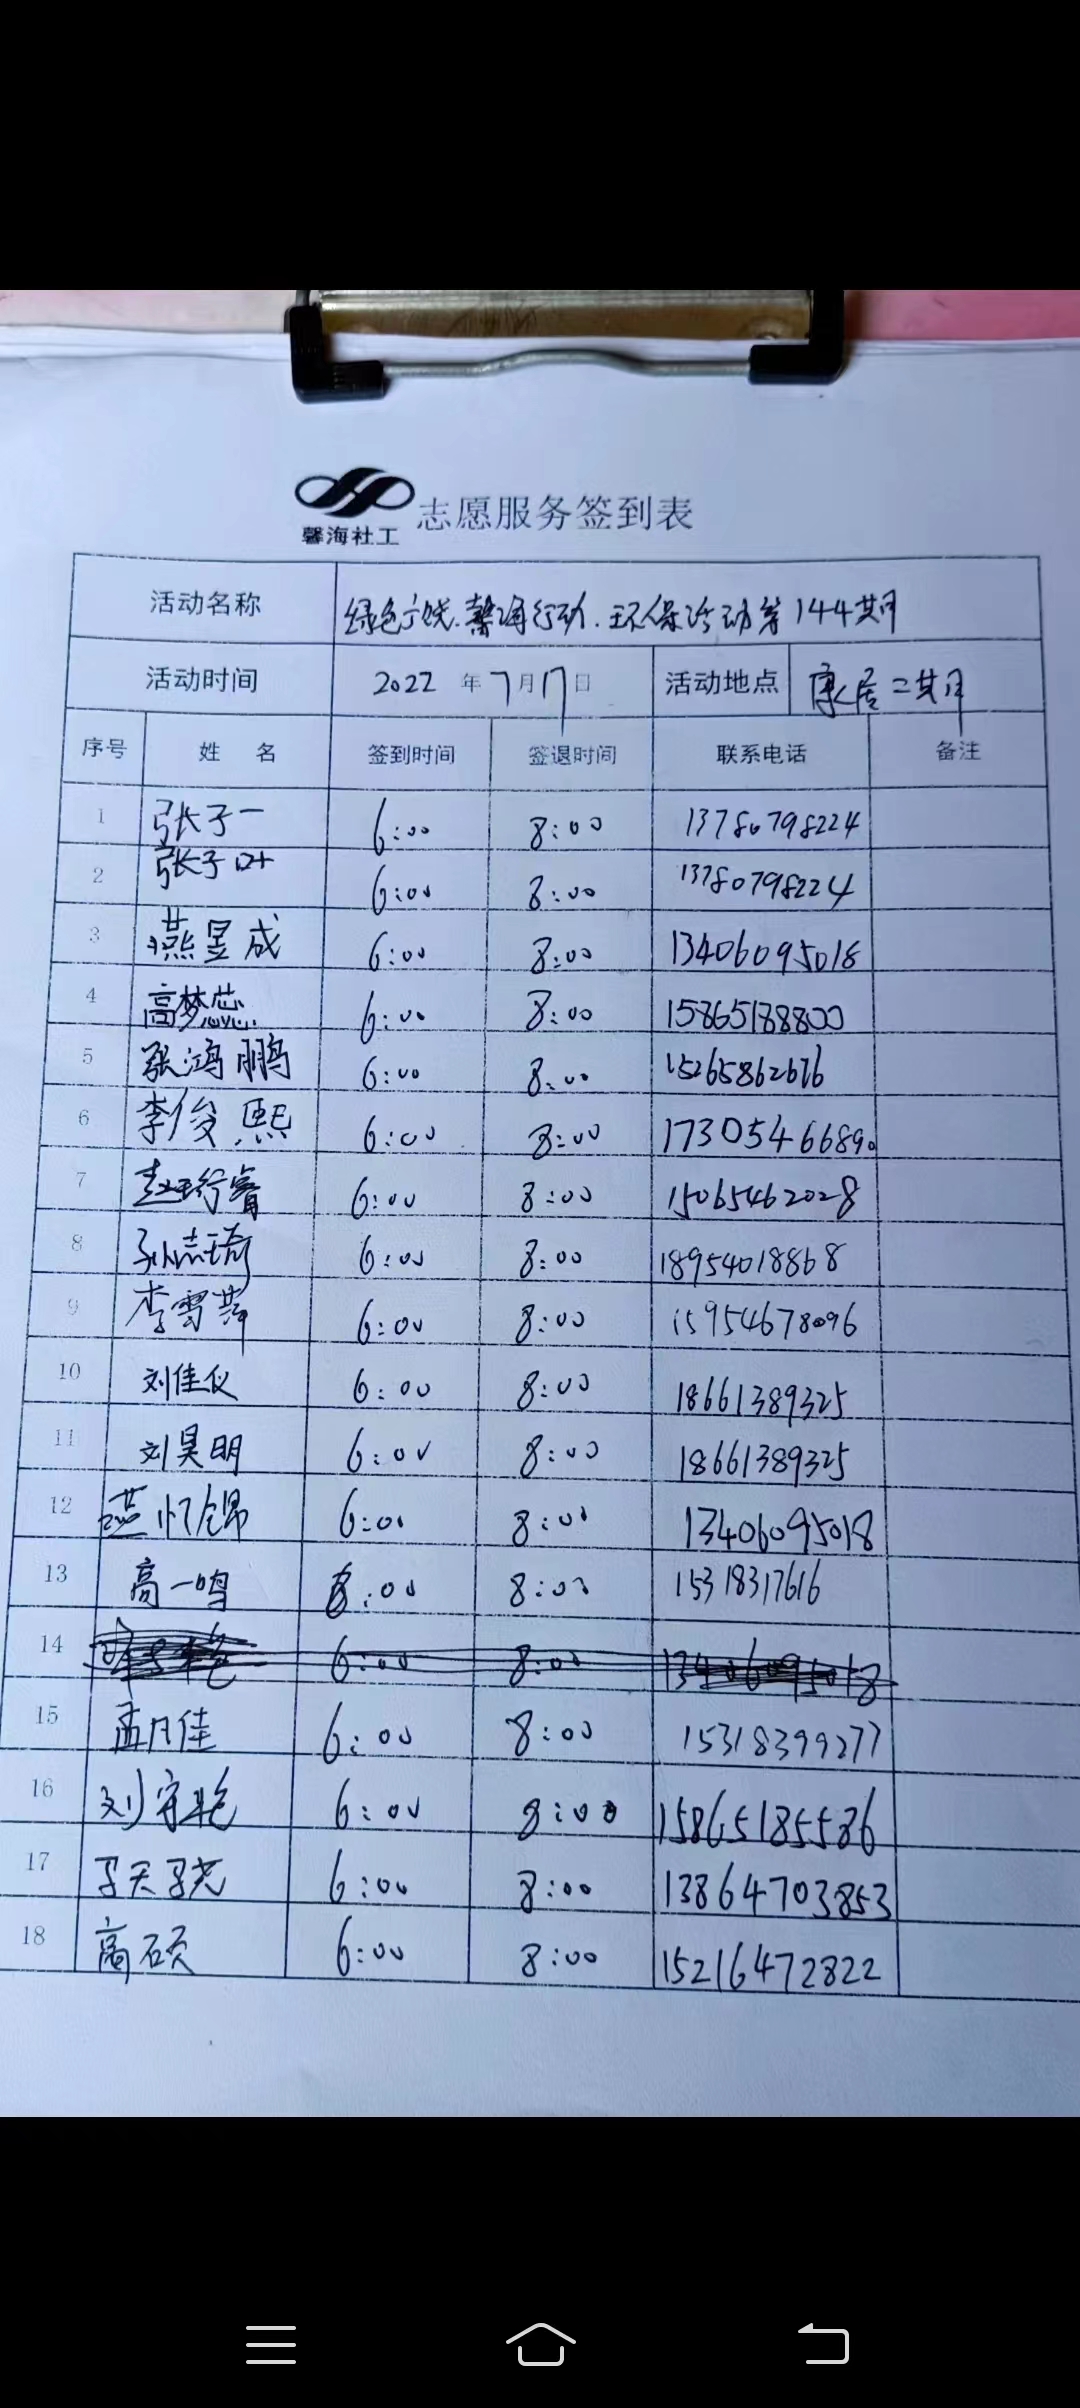 馨海社工 志愿服务签到表
活动名称 绿色广饶.馨海行动.环保活动第144期
活动时间 2022年7月17日 活动地点 康居二期
序号 姓名 签到时间 签退时间 联系电话 备注
1 张子一 6:00 8:00 13780798224
2 张子叶 6:00 8:00 13780798224
3 燕昱成 6:00 8:00 13406095018
4 高梦蕊 6:00 8:00 15865188800
5 张鸿鹏 6:00 8:00 15265862676
6 李俊熙 6:00 8:00 17305466890
7 赵珩睿 6:00 8:00 15065462028
8 孙志琦 6:00 8:00 18954018868
9 李雪 6:00 8:00 15954678096
10 刘佳仪 6:00 8:00 18661389325
11 刘昊明 6:00 8:00 18661389325
12 燕忆锦 6:00 8:00 13406095018
13 高一鸣 6:00 8:00 15318317616
14 6:00 8:00 13406095018
15 孟月佳 6:00 8:00 15318399277
16 刘守艳 6:00 8:00 15865185586
17 6:00 8:00 13864703853
18 高硕 6:00 8:00 15216472822